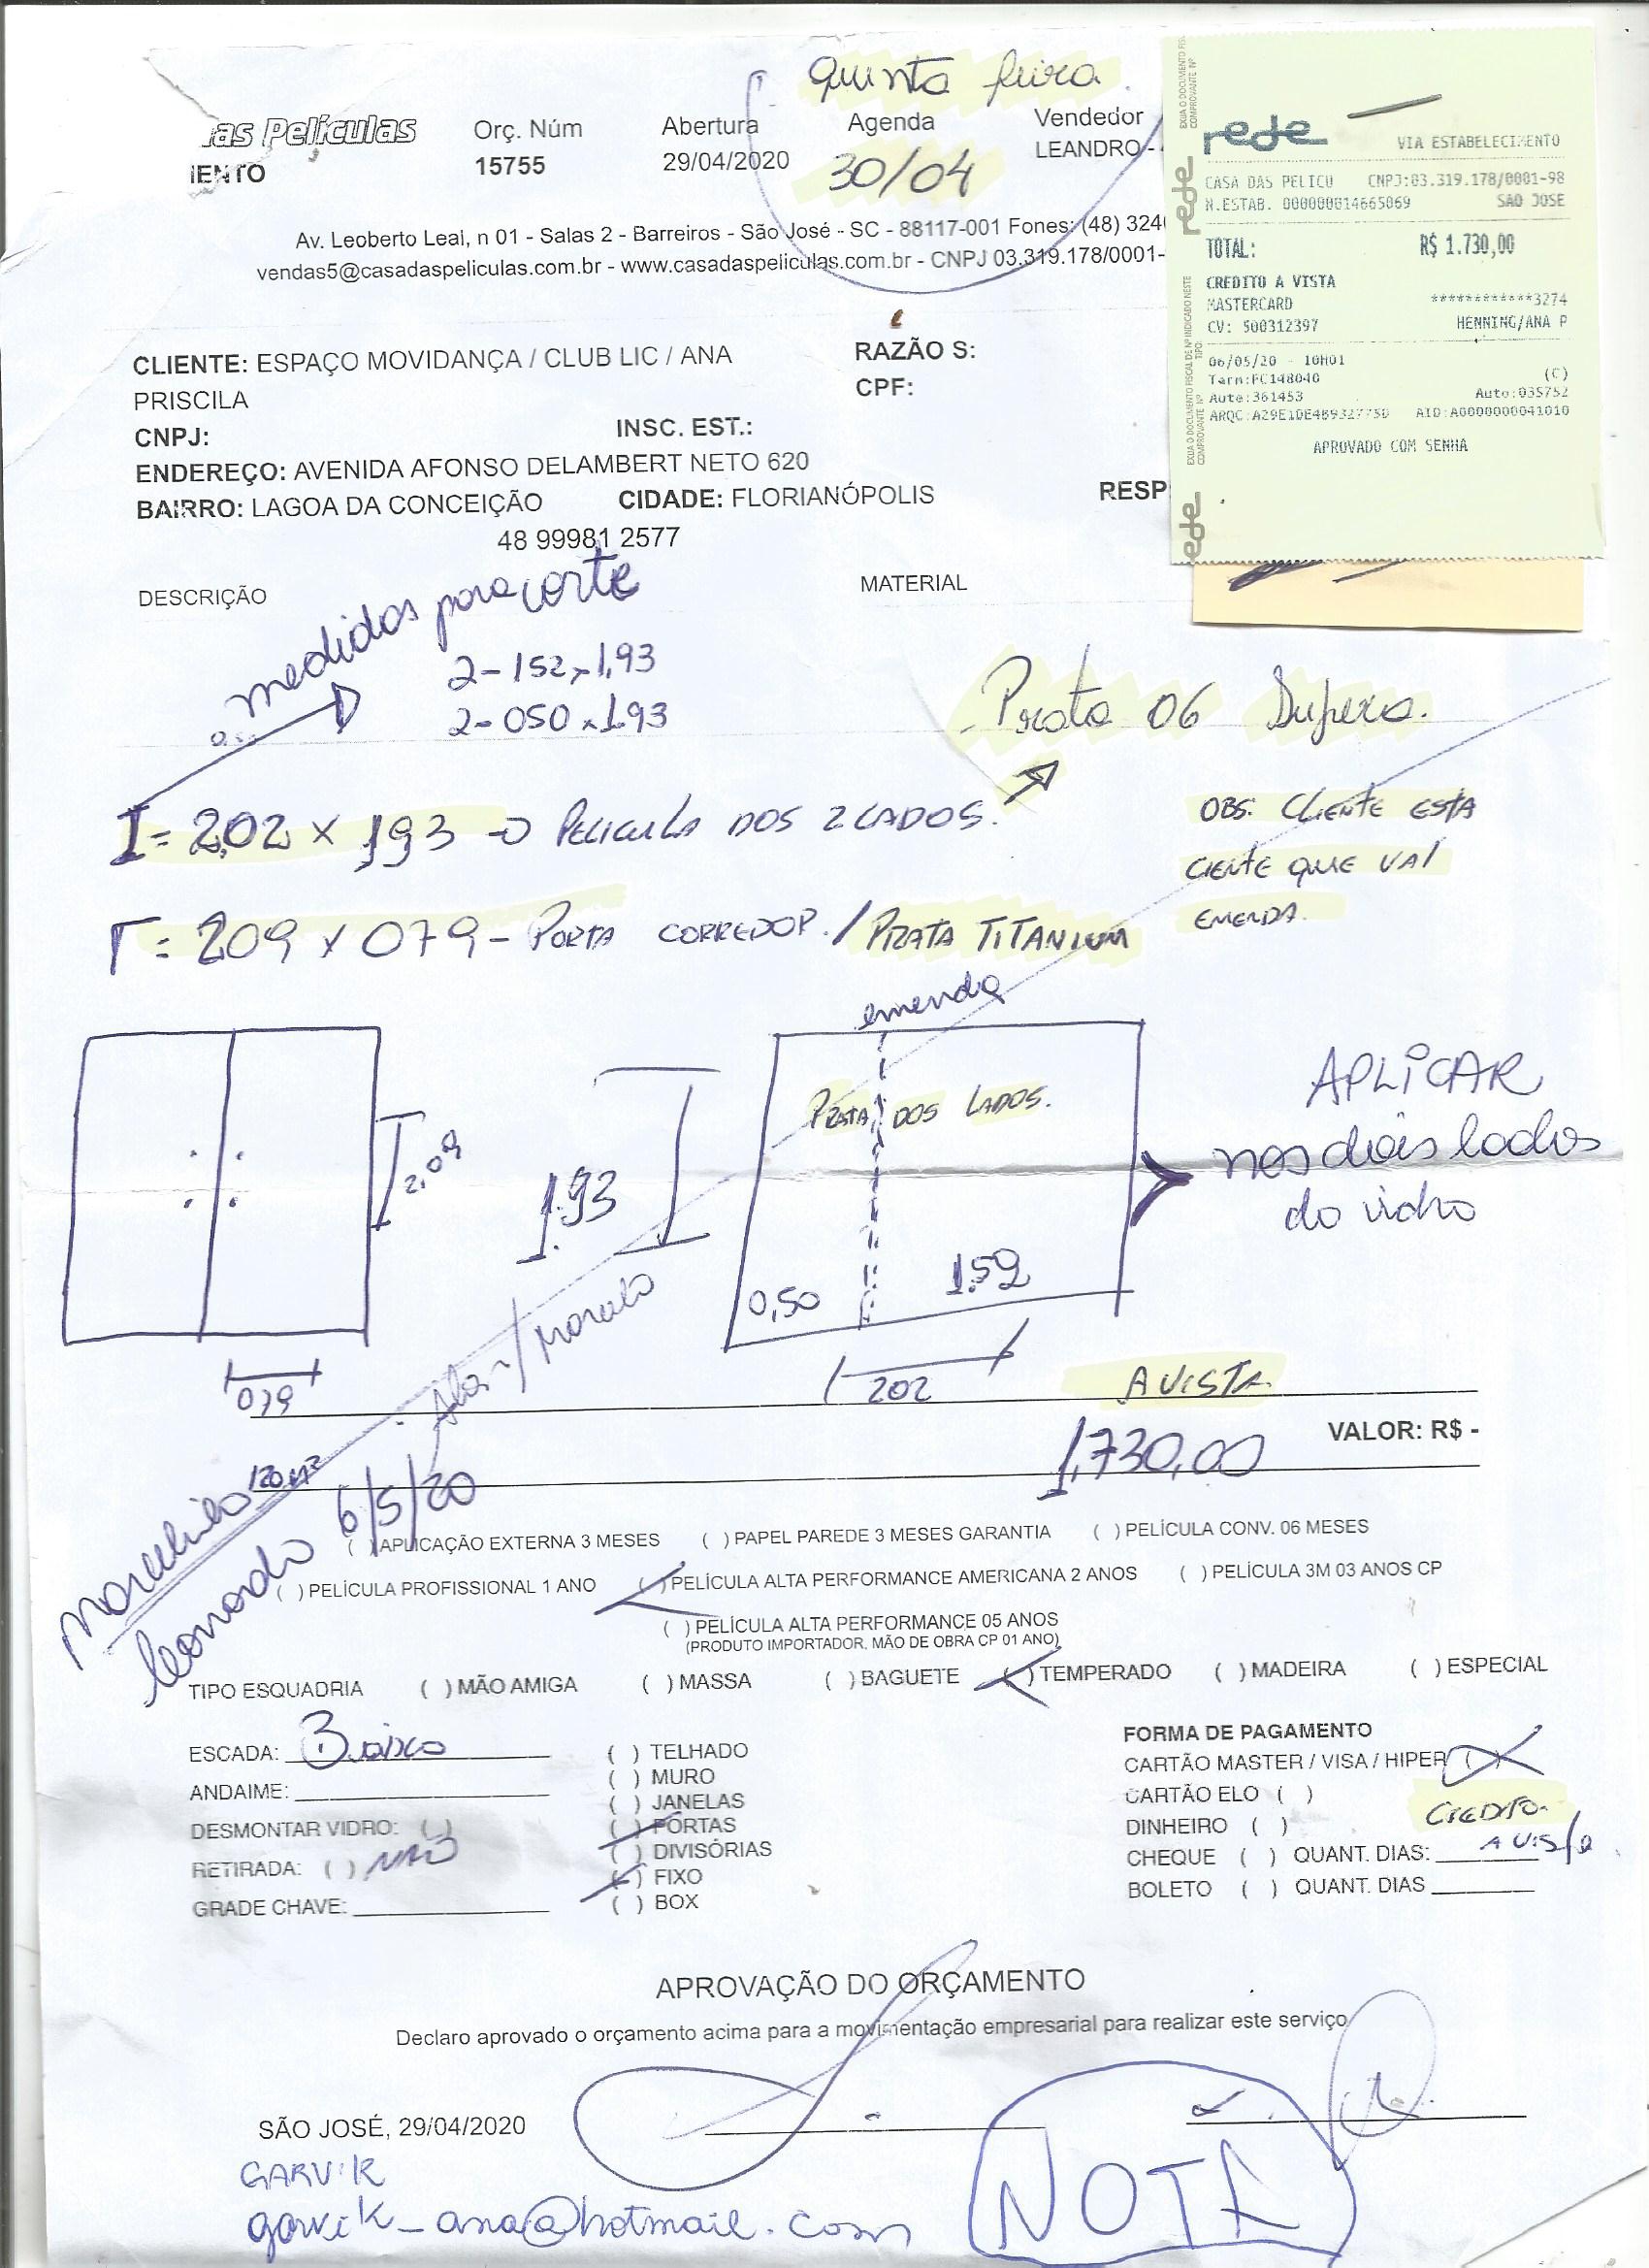 quinta feira
as Películas
IENTO
Orç. Núm
15755
Abertura
29/04/2020
Agenda
30/04
Vendedor
LEANDRO -
Av. Leoberto Leal, n 01 - Salas 2 - Barreiros - São José - SC - 88117-001 Fones: (48) 324
vendas5@casadaspeliculas.com.br - www.casadaspeliculas.com.br - CNPJ 03.319.178/0001-
rede
VIA ESTABELECIMENTO
CASA DAS PELICU CNPJ:03.319.178/0001-98
N.ESTAB. 000000014665069 SAO JOSE
TOTAL: R$ 1.730,00
CREDITO A VISTA
MASTERCARD ************3274
CV: 500312397 HENNING/ANA P
06/05/20 - 10H01
Term:FC148040 (C)
Aute:361453 Auto:035752
AID:A0000000041010
APROVADO COM SENHA
rede
CLIENTE: ESPAÇO MOVIDANÇA / CLUB LIC / ANA
PRISCILA
RAZÃO S:
CPF:
CNPJ:
INSC. EST.:
ENDEREÇO: AVENIDA AFONSO DELAMBERT NETO 620
BAIRRO: LAGOA DA CONCEIÇÃO CIDADE: FLORIANÓPOLIS
RESP
48 99981 2577
DESCRIÇÃO
MATERIAL
medidas para corte
2-152x1,93
2-050x1.93
- Prata 06 Supera.
I = 2,02 x 1,93 -> PELICULA DOS 2 LADOS.
OBS. CLIENTE ESTA
CIENTE QUE VAI
EMENDA.
I = 209 x 079 - PORTA CORREDOR. / PRATA TITANIUM
emenda
PRATA DOS LADOS.
2,09
1.93
0,50
1.52
079
202
APLICAR
nos dois lados
do vidro
A VISTA
1,730,00
VALOR: R$ -
6/5/20
leonardo
( ) APLICAÇÃO EXTERNA 3 MESES ( ) PAPEL PAREDE 3 MESES GARANTIA ( ) PELÍCULA CONV. 06 MESES
( ) PELÍCULA PROFISSIONAL 1 ANO ( ) PELÍCULA ALTA PERFORMANCE AMERICANA 2 ANOS ( ) PELÍCULA 3M 03 ANOS CP
( ) PELÍCULA ALTA PERFORMANCE 05 ANOS
(PRODUTO IMPORTADOR, MÃO DE OBRA CP 01 ANO)
TIPO ESQUADRIA ( ) MÃO AMIGA ( ) MASSA ( ) BAGUETE ( ) TEMPERADO ( ) MADEIRA ( ) ESPECIAL
ESCADA:
ANDAIME:
DESMONTAR VIDRO: ( )
RETIRADA: ( ) NÃO
GRADE CHAVE:
( ) TELHADO
( ) MURO
( ) JANELAS
( ) PORTAS
( ) DIVISÓRIAS
( ) FIXO
( ) BOX
FORMA DE PAGAMENTO
CARTÃO MASTER / VISA / HIPER ( )
CARTÃO ELO ( )
CREDITO.
DINHEIRO ( )
CHEQUE ( ) QUANT. DIAS: A VISTA
BOLETO ( ) QUANT. DIAS
APROVAÇÃO DO ORÇAMENTO
Declaro aprovado o orçamento acima para a movimentação empresarial para realizar este serviço
SÃO JOSÉ, 29/04/2020
GARVIK
garvik_ana@hotmail.com
NOTA